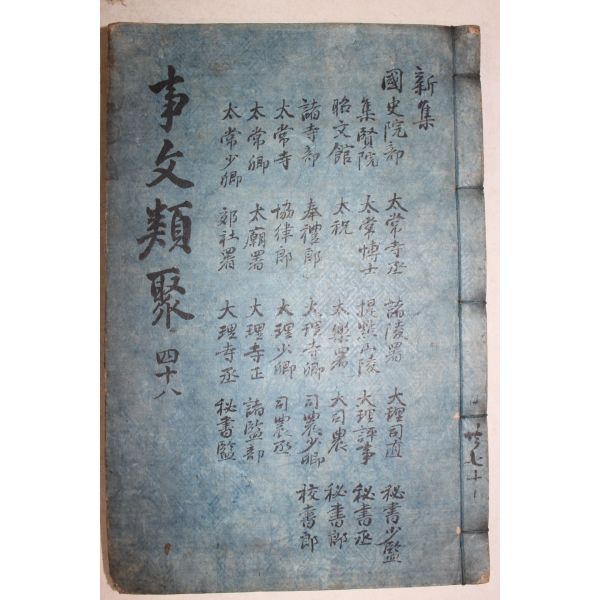 共七十
新集
國史院部 太常寺丞 諸陵署 大理司直 秘書少監
集賢院 太常博士 提點山陵 大理評事 秘書丞
昭文館 太祝 太樂署 大司農 秘書郎
諸寺部 奉禮郎 大理寺卿 司農少卿 校書郎
太常寺 協律郎 大理少卿 司農丞
太常卿 太廟署 大理寺正 諸監部
太常少卿 郊社署 大理寺丞 秘書監
事文類聚 四十八